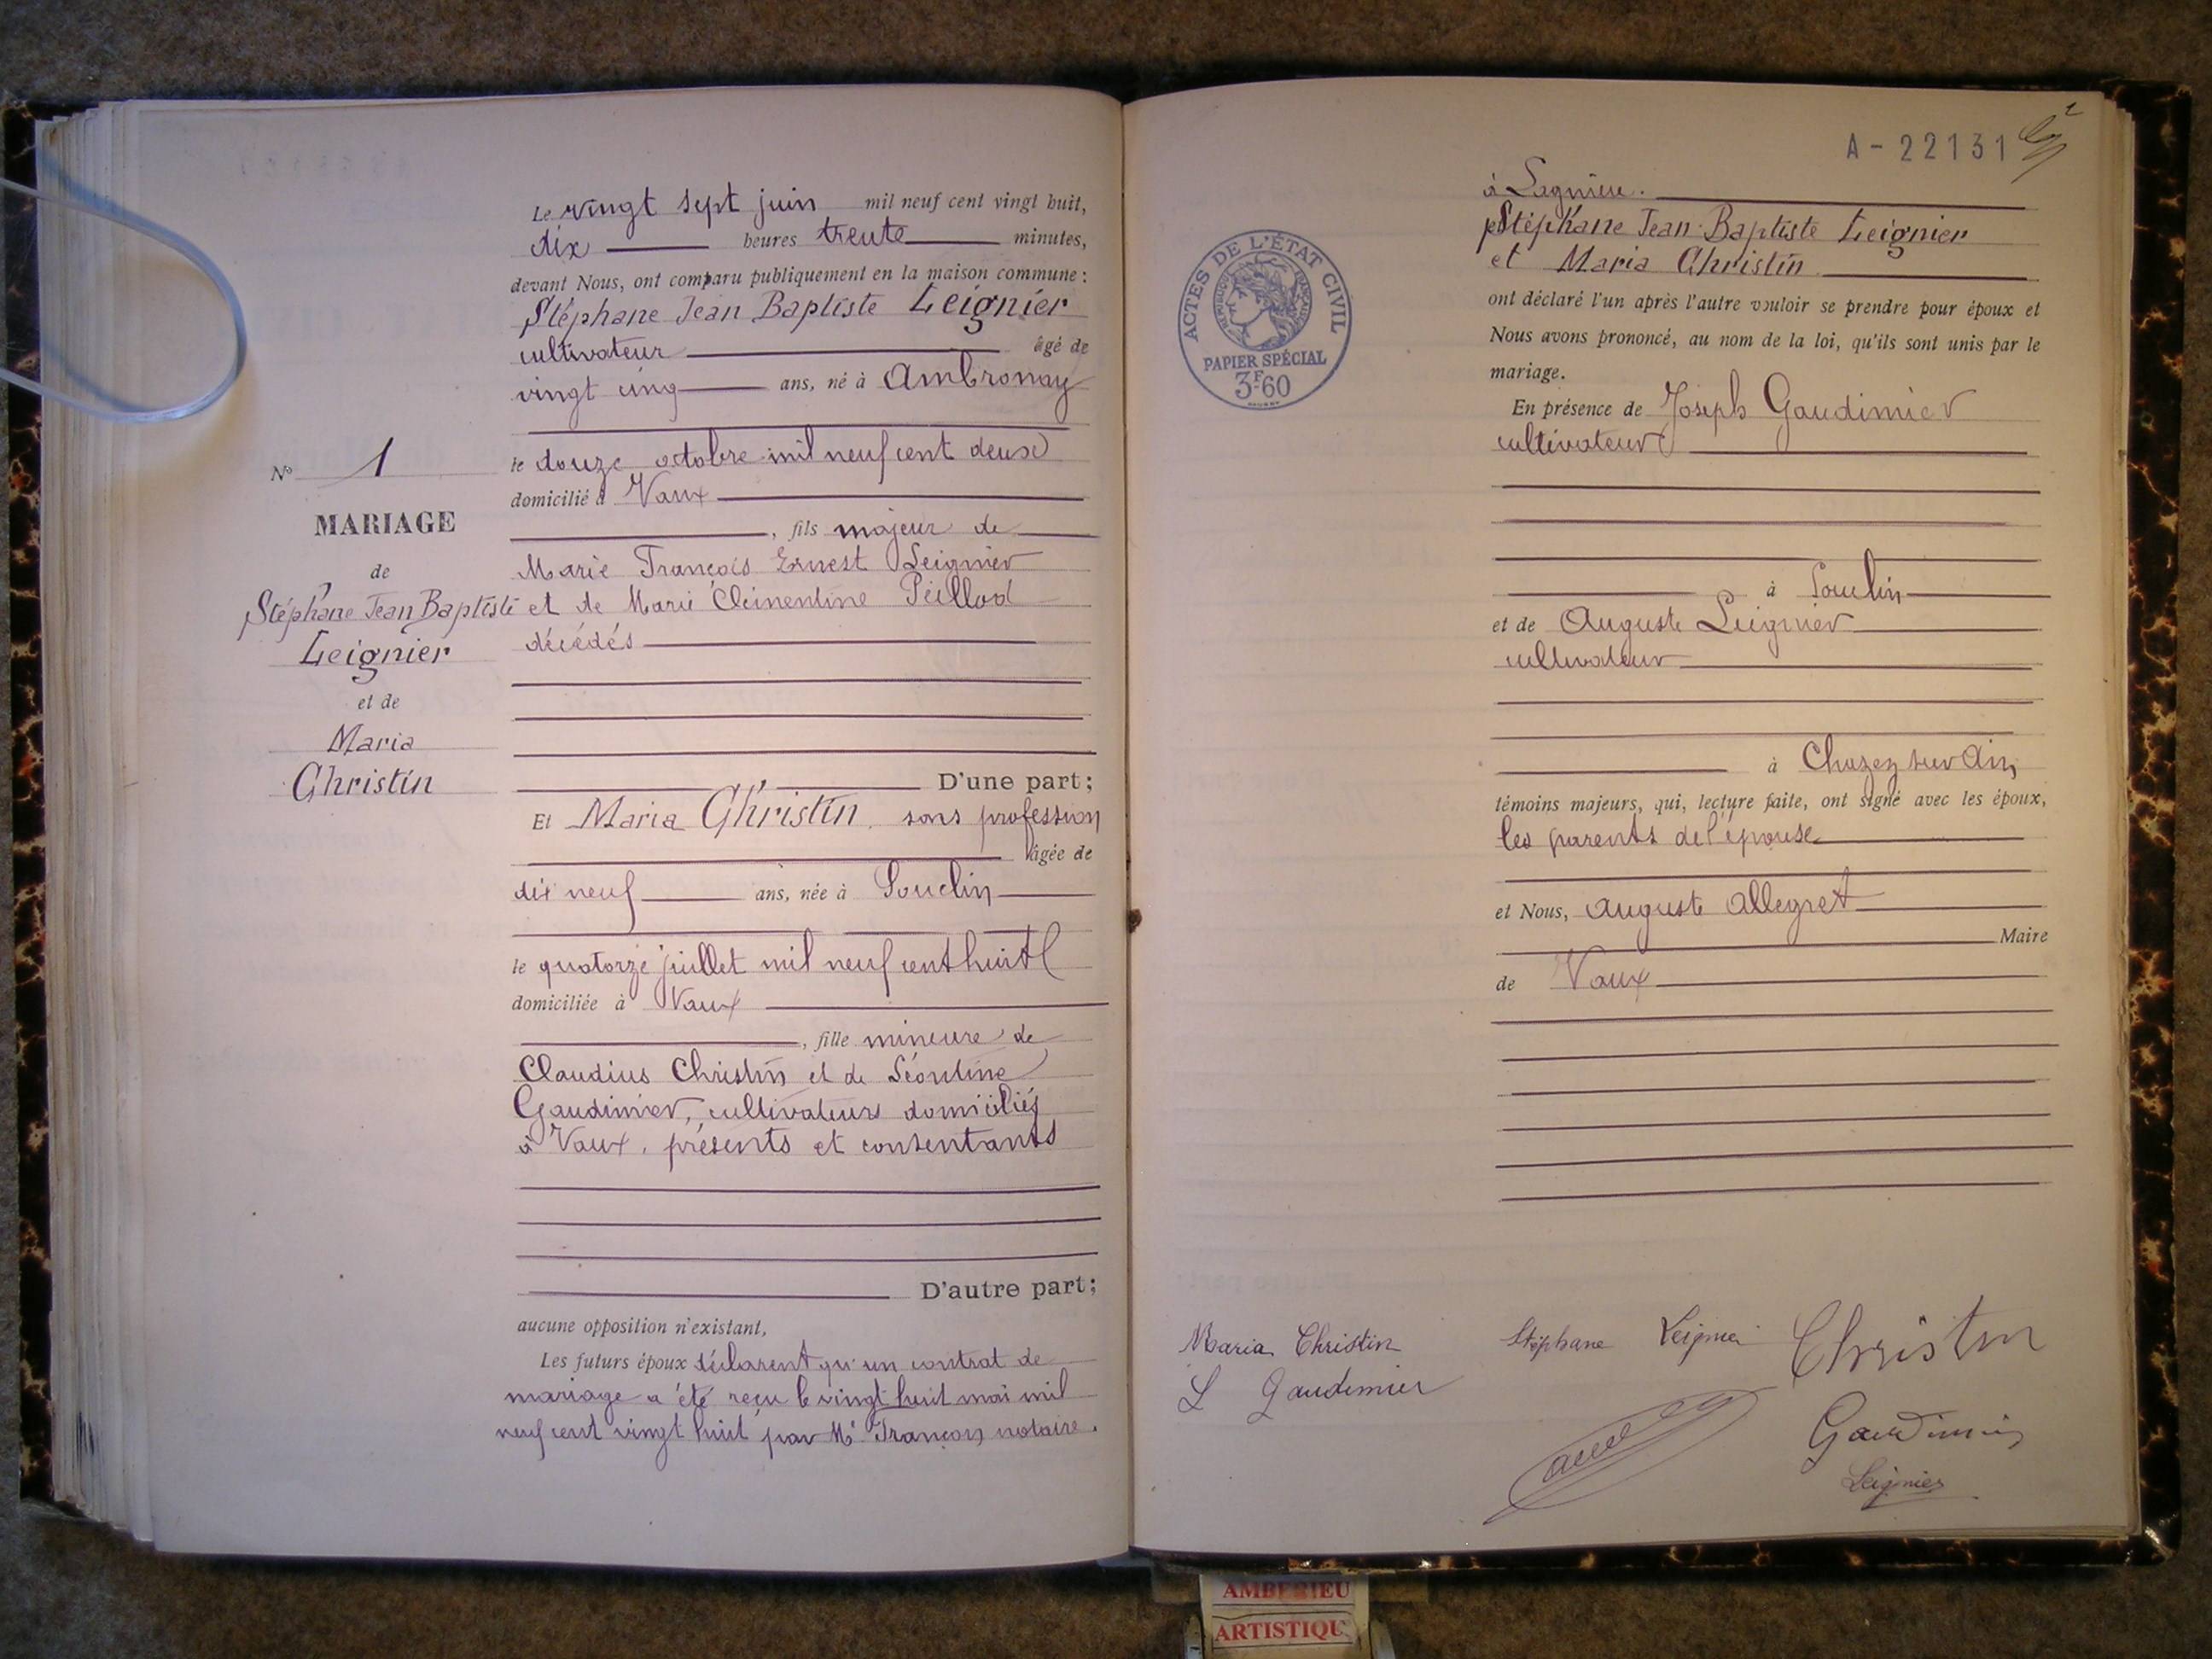 Le vingt sept juin mil neuf cent vingt huit,
dix heures trente minutes,
devant Nous, ont comparu publiquement en la maison commune :
Stéphane Jean Baptiste Leignier
cultivateur âgé de
vingt cinq ans, né à Ambronay
le douze octobre mil neuf cent deux
domicilié à Vaux
, fils majeur de
Marie François Ernest Leignier
et de Marie Clémentine Peillod
décédés
D'une part;
Et Maria Christin, sans profession
âgée de
dix neuf ans, née à Souclin
le quatorze juillet mil neuf cent huit
domiciliée à Vaux
, fille mineure de
Claudius Christin et de Léontine
Gaudimier, cultivateurs domiciliés
à Vaux, présents et consentants
D'autre part;
aucune opposition n'existant,
Les futurs époux déclarent qu'un contrat de
mariage a été reçu le vingt huit mai mil
neuf cent vingt huit par Me François notaire.
N° 1
MARIAGE
de
Stéphane Jean Baptiste
Leignier
et de
Maria
Christin
A - 22131
2
à Lagnieu.
Stéphane Jean Baptiste Leignier
et Maria Christin
ont déclaré l'un après l'autre vouloir se prendre pour époux et
Nous avons prononcé, au nom de la loi, qu'ils sont unis par le
mariage.
En présence de Joseph Gaudimier
cultivateur
à Souclin
et de Auguste Leignier
cultivateur
à Chazey sur Ain,
témoins majeurs, qui, lecture faite, ont signé avec les époux,
les parents de l'épouse
et Nous, Auguste Allegret
Maire
de Vaux
ACTES DE L'ÉTAT CIVIL
RÉPUBLIQUE FRANÇAISE
PAPIER SPÉCIAL
3F60
Maria Christin Stéphane Leignier Christin
L Gaudimier
Gaudimier
Leignier
AMBERIEU
ARTISTIQU